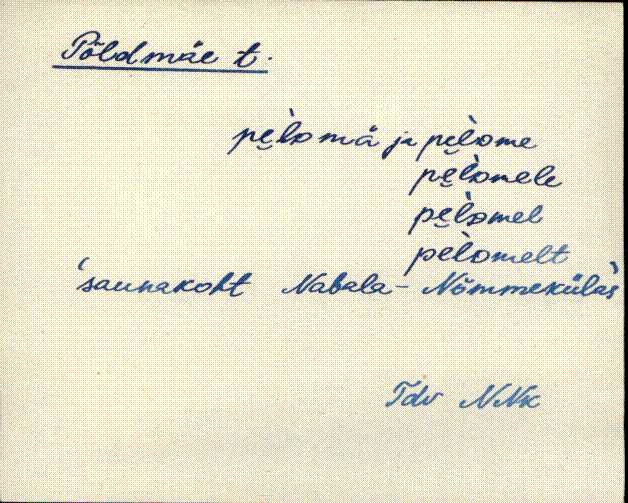 Põldmäe t.
pe̮l̀omä ja pe̮l̀ome
pe̮l̀omele
pe̮l̀omel
pel̀omelt
'saunakoht Nabala-Nõmmekülas'
Tdv NNk